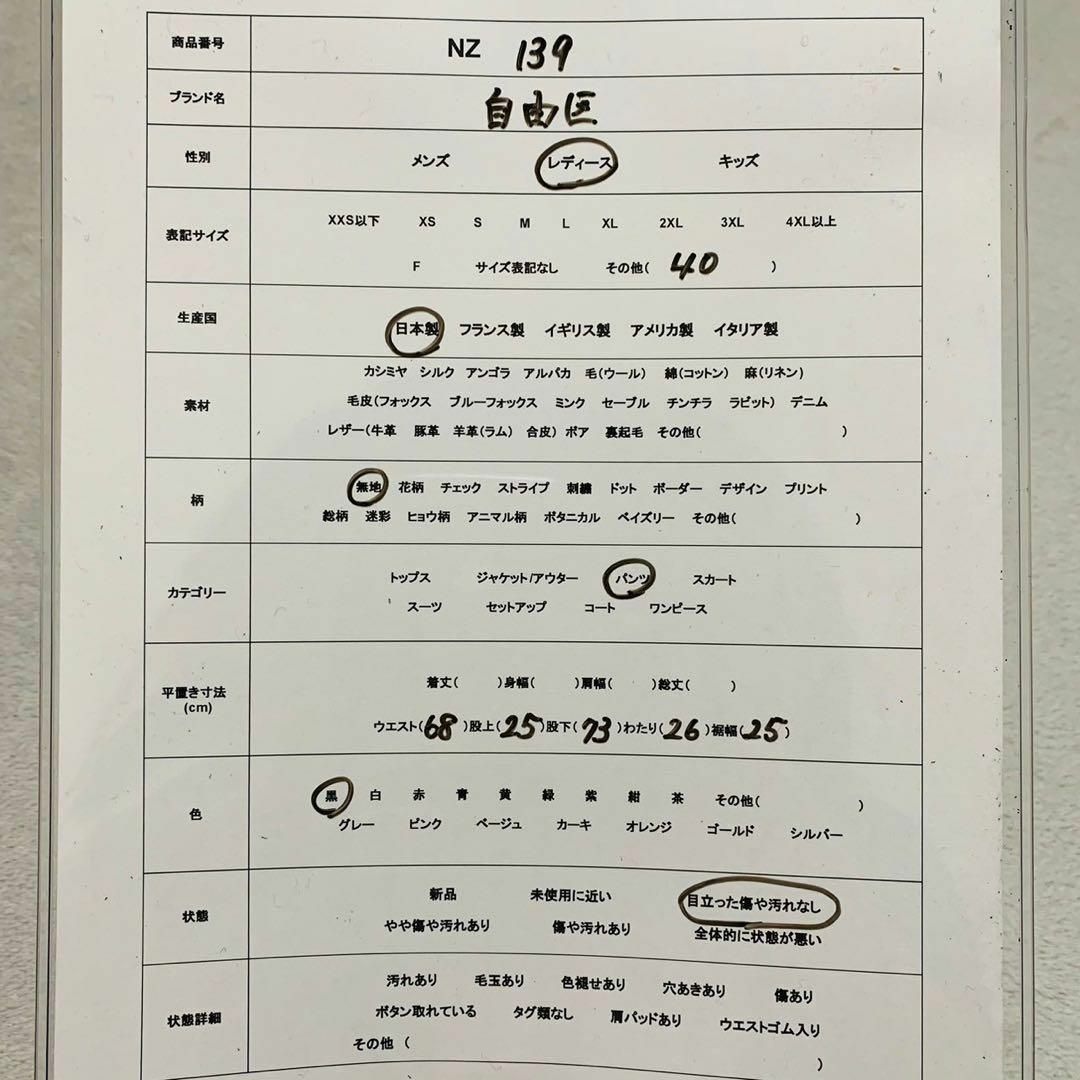 商品番号 NZ 139
ブランド名 自由区
性別 メンズ レディース キッズ
表記サイズ
XXS以下 XS S M L XL 2XL 3XL 4XL以上
F サイズ表記なし その他( 40 )
生産国 日本製 フランス製 イギリス製 アメリカ製 イタリア製
素材
カシミヤ シルク アンゴラ アルパカ 毛(ウール) 綿(コットン) 麻(リネン)
毛皮(フォックス ブルーフォックス ミンク セーブル チンチラ ラビット) デニム
レザー(牛革 豚革 羊革(ラム) 合皮) ボア 裏起毛 その他( )
柄
無地 花柄 チェック ストライプ 刺繍 ドット ボーダー デザイン プリント
総柄 迷彩 ヒョウ柄 アニマル柄 ボタニカル ペイズリー その他( )
カテゴリー
トップス ジャケット/アウター パンツ スカート
スーツ セットアップ コート ワンピース
平置き寸法
(cm)
着丈( )身幅( )肩幅( )総丈( )
ウエスト(68)股上(25)股下(73)わたり(26)裾幅(25)
色
黒 白 赤 青 黄 緑 紫 紺 茶 その他( )
グレー ピンク ベージュ カーキ オレンジ ゴールド シルバー
状態
新品 未使用に近い 目立った傷や汚れなし
やや傷や汚れあり 傷や汚れあり 全体的に状態が悪い
状態詳細
汚れあり 毛玉あり 色褪せあり 穴あきあり 傷あり
ボタン取れている タグ類なし 肩パッドあり ウエストゴム入り
その他 ( )